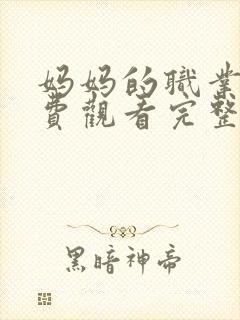 妈妈的職業
費觀看完整
黑暗神帝